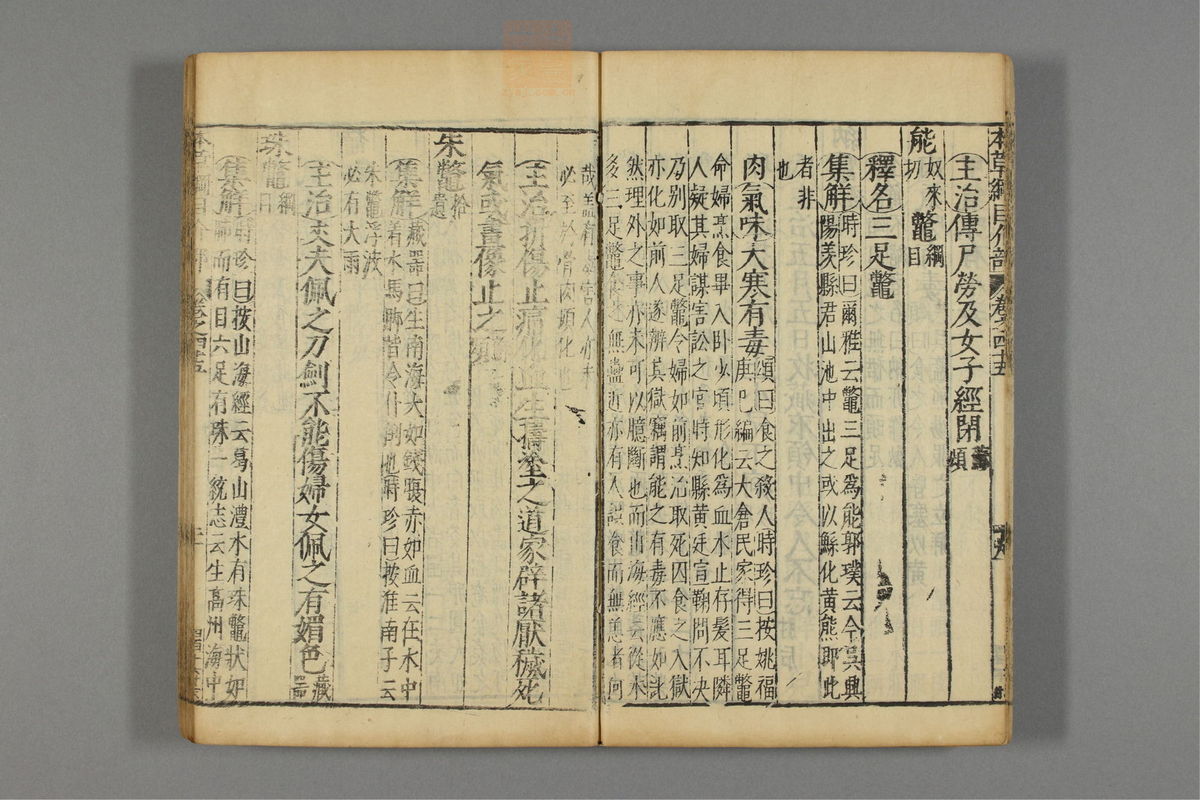 本草綱目介部 卷之四十五
主治傳尸勞及女子經閉蘇頌
能奴來切鼈綱目
釋名三足鼈
集解時珍曰爾雅云鼈三足為能郭璞云今吳興
陽羨縣君山池中出之或以鯀化黃熊即此
者非
也
肉氣味大寒有毒頌曰食之殺人時珍曰按姚福
庚巳編云太倉民家得三足鼈
命婦烹食畢入卧少頃形化為血水止存髮耳隣
人疑其婦謀害訟之官時知縣黃廷宣鞠問不决
乃別取三足鼈令婦如前烹治取死囚食之入獄
亦化如前人遂辨其獄竊謂能之有毒不應如此
然理外之事亦未可以臆斷也而山海經云從水
多三足鼈食之無蠱近亦有人誤食而無恙者何
哉蓋有毒害人亦未
必至於骨肉頓化也
主治折傷止痛化血生擣塗之道家辟諸厭穢死
氣或畫像止之
朱鼈拾遺
集解藏器曰生南海大如錢腹赤如血云在水中
着水馬脚皆令仆倒也時珍曰按淮南子云
朱鼈浮波
必有大雨
主治丈夫佩之刀劍不能傷婦女佩之有媚色藏器
珠鼈綱目
集解時珍曰按山海經云葛山澧水有珠鼈狀如
肺而有目六足有珠一統志云生高州海中